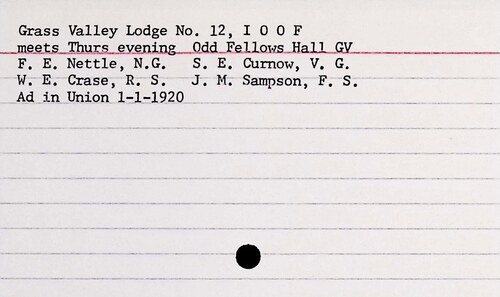 Grass Valley Lodge No. 12, I O O F
meets Thurs evening  Odd Fellows Hall GV
F. E. Nettle, N.G.   S. E. Curnow, V. G.
W. E. Crase, R. S.   J. M. Sampson, F. S.
Ad in Union 1-1-1920